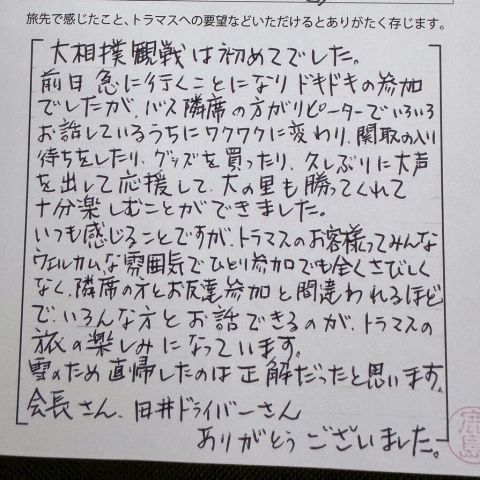 旅先で感じたこと、トラマスへの要望などいただけるとありがたく存じます。
大相撲観戦は初めてでした。
前日急に行くことになりドキドキの参加
でしたが、バス隣席の方がリピーターでいろいろ
お話しているうちにワクワクに変わり、関取の入り
待ちをしたり、グッズを買ったり、久しぶりに大声
を出して応援して、大の里も勝ってくれて
十分楽しむことができました。
いつも感じることですが、トラマスのお客様ってみんな
ウェルカムな雰囲気でひとり参加でも全くさびしく
なく、隣席の方とお友達参加と間違われるほど
で、いろんな方とお話できるのが、トラマスの
旅の楽しみになっています。
雪のため直帰したのは正解だったと思います。
会長さん、臼井ドライバーさん
ありがとうございました。
鹿島